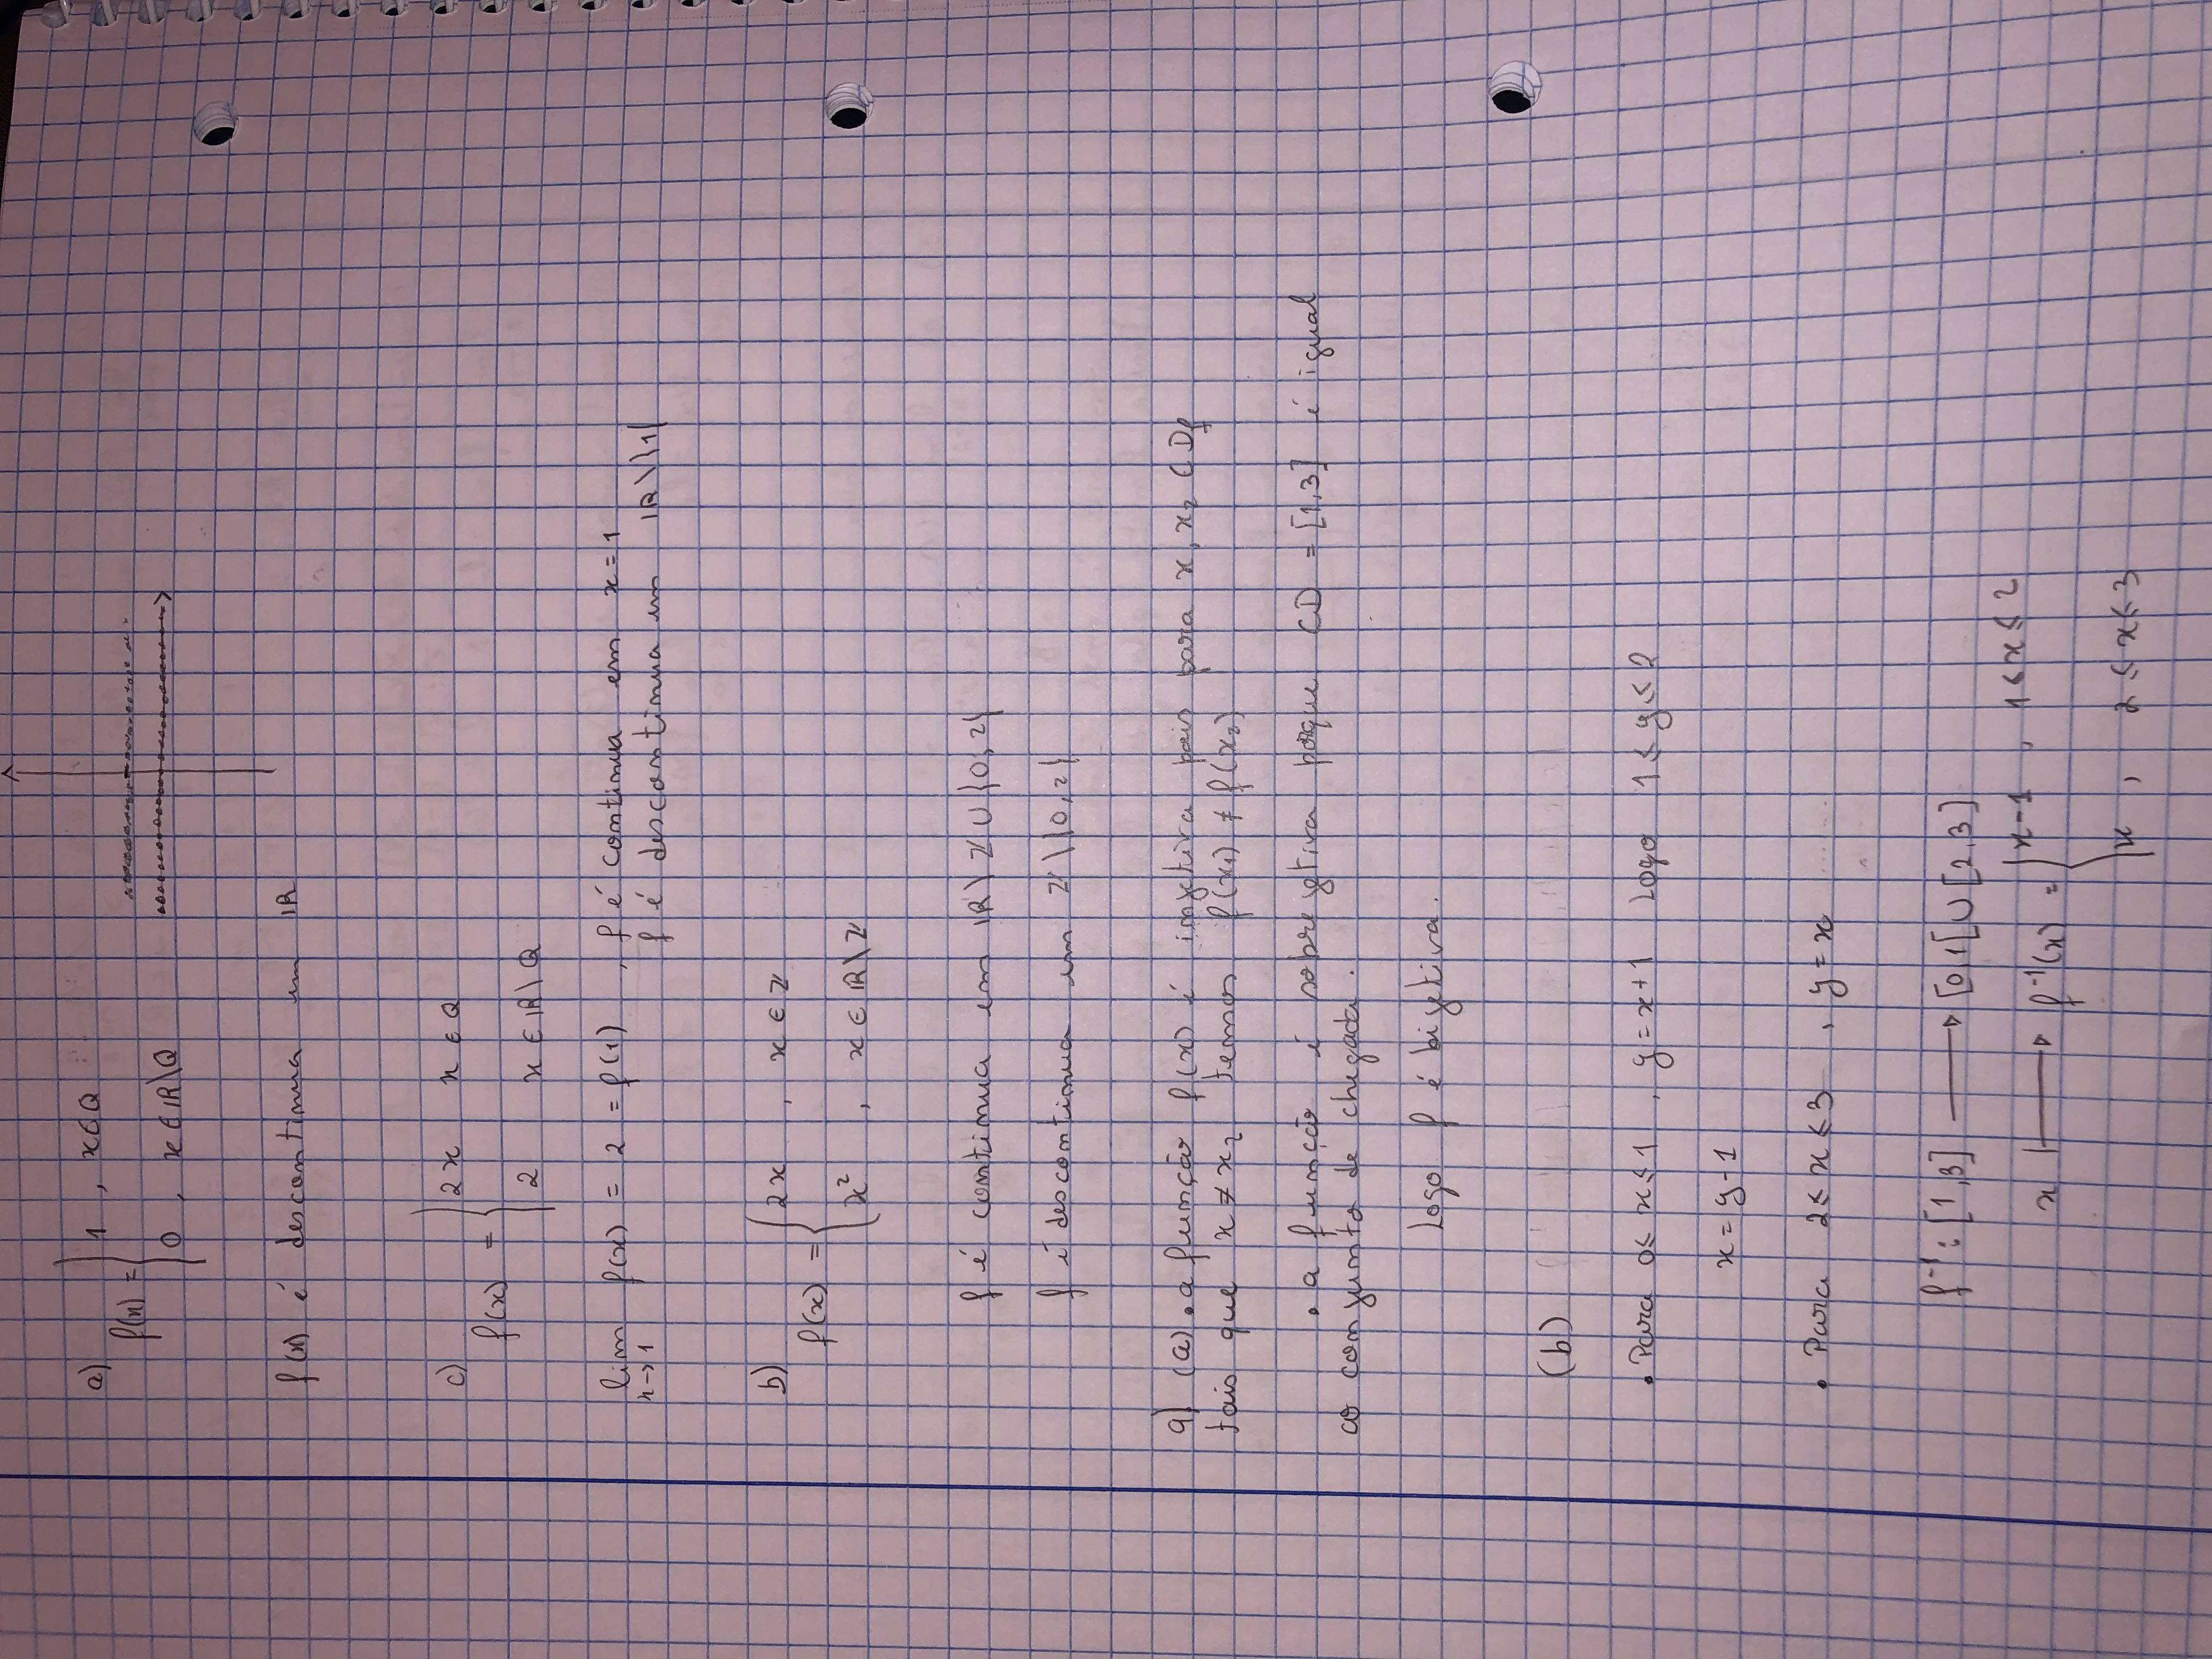 a) f(x) = { 1 , x ∈ Q
0 , x ∈ IR\Q
f(x) é descontinua em IR
c) f(x) = { 2x x ∈ Q
2 x ∈ IR\Q
lim f(x) = 2 = f(1) , f é continua em x = 1
x→1 f é descontinua em IR\{1}
b) f(x) = { 2x , x ∈ Z
x² , x ∈ IR\Z
f é continua em IR\Z ∪ {0, 2}
f é descontinua em Z\{0, 2}
9) (a) . a função f(x) é injetiva pois para x, x₂ ∈ Df
tais que x ≠ x₂ temos f(x₁) ≠ f(x₂)
. a função é sobrejetiva porque CD = [1,3] é igual
ao conjunto de chegada.
Logo f é bijetiva.
(b)
. Para 0 ≤ x ≤ 1 , y = x+1 Logo 1 ≤ y ≤ 2
x = y - 1
. Para 2 ≤ x ≤ 3 , y = x
f⁻¹: [1,3] → [0,1[ ∪ [2,3]
x ↦ f⁻¹(x) = { x-1 , 1 ≤ x ≤ 2
x , 2 ≤ x ≤ 3